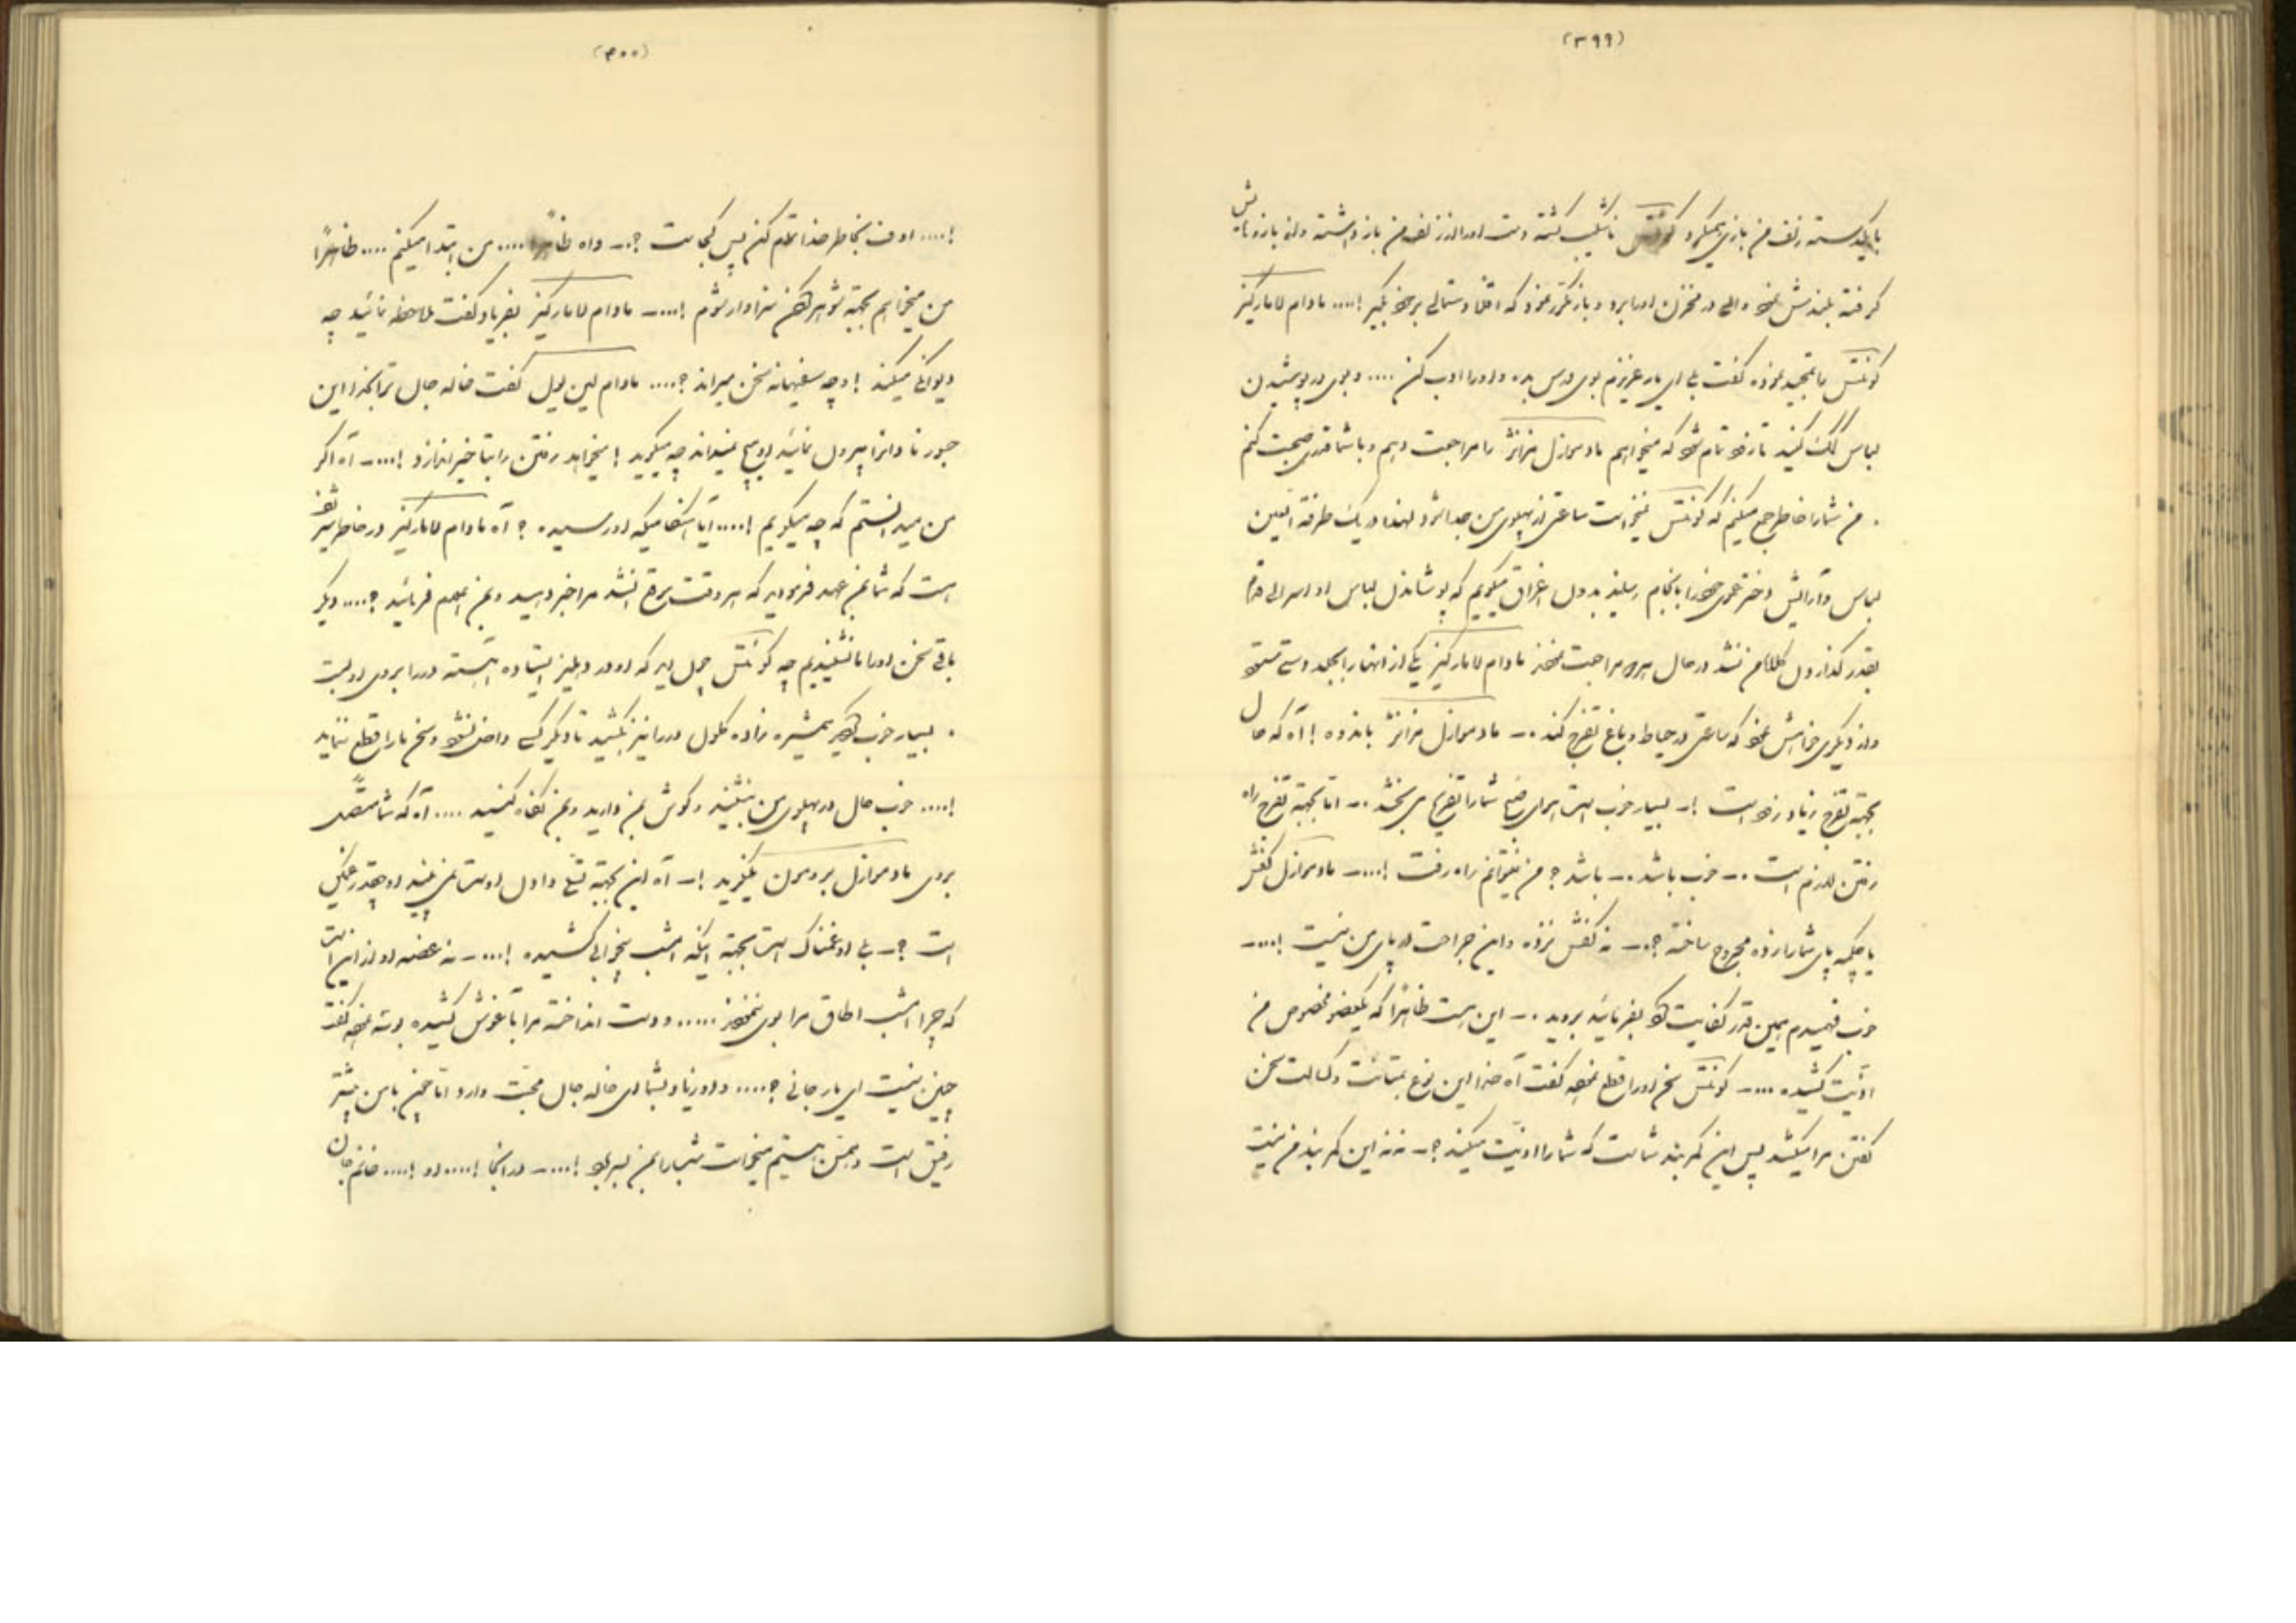 (۳۹۹)
با یکدسته زلف من بازی میکرد کونتس ناشکیب گشته دست او را از زلف من باز داشته و از بازوهایش
گرفته بلندش نمود والی در مخزن او را برد و باز مکرر نمود که اقلا دستمالی بر خود بگیر !.... مادام لامارکیز
کونتس را تمجید نموده گفت بلی ای یار عزیزم بوی درس بده و او را ادب کن .... و بوی در پوشیدن
لباس کمک کنید تا زود تمام شود که میخواهیم مادموازل را مراجعت دهیم و با شما قدری صحبت کنم
. من شما را خاطر جمع میکنم که کونتس نمیخواست ساعتی از پهلوی من جدا شود لهذا در یک طرفة العین
لباس و آرایش دختر عموی خود را بانجام رسانید بدون اغراق میگویم که پوشاندن لباس او
بقدر گذاردن کلاه من نشد در حال هر دو مراجعت نمودند مادام لامارکیز یکی از انها را
و از دیگری خواهش نمود که ساعتی در حیاط و باغ تفرج کند .ـ مادموازل باندوه ! آه که حال
بجهة تفرج زیاد زود است !ـ بسیار خوب است هوای صبح شما را تفریح می بخشد .ـ اما بجهة تفرج راه
رفتن لازم است .ـ خوب باشد .ـ باشد ؟ من نمیتوانم راه رفت !....ـ مادموازل کفش
یا چکمه پای شما را زده مجروح ساخته ؟.ـ نه کفش نزده و این جراحت در پای من نیست !....ـ
خوب فهمیدم همین قدر کفایت کرد بفرمائید بروید .ـ این هست ظاهرًا که یکعضو مخصوص من
اذیّت کشیده ....ـ کونتس سخن او را قطع نموده گفت آه خدا این نوع بمتانت و کسالت سخن
گفتن مرا میکشد پس این کمربند شماست که شما را اذیّت میکند ؟.ـ نه نه این کمربند من نیست
(۴۰۰)
!.... اوف بخاطر خدا تمام کن پس کجاست ؟.ـ واه ظاهرًا .... من ابتدا میکنم .... ظاهرًا
من میخواهم بجهة شوهر کردن سزاوار شوم !....ـ مادام لامارکیز بفریاد گفت ملاحظه نمائید چه
دیوانگی میکند ! و چه سفیهانه سخن میراند ؟.... مادام لین وول گفت خاله جان ترا بخدا این
جور نادانرا بیرون نمائید او هیچ نمیداند چه میگوید ! میخواهد رفتن را بتاخیر اندازد !....ـ آه اگر
من میدانستم که چه میگویم !.... آیا اشخاصیکه او رسیده ؟ آه مادام لامارکیز در خاطر شریف
هست که شما بمن عهد فرمودید که هر وقت موقع باشد مرا خبر دهید و بمن اعلام فرمائید ؟.... دیگر
باقی سخن او را ما نشنیدیم چه کونتس چون دید که او در دهلیز ایستاده آهسته در را بروی او بست
. بسیار خوب کردید همشیره زاده کلون در را نیز بکشید تا دیگر کسی داخل نشود و سخن ما را قطع ننماید
!.... خوب حال در پهلوی من بنشینید و گوش بمن دارید و بمن نگاه کنید .... آه که شما متّصل
بروی مادموازل برومون میگرید !ـ آه این بجهة تسلّی دادن اوست نمی بینید او چقدر غمگین
است ؟.ـ بلی او غمناک است بجهة اینکه امشب بیخوابی کشیده !....ـ نه غصّه او از این است
که چرا امشب اطاق مرا بوی ننمودند ..... و دست انداخته مرا بآغوش کشیده بوسه نموده گفت
چنین نیست ای یار جانی ؟.... و او زیاد بشما ای خاله جان محبّت دارد اما چون با من بیشتر
رفیق است و بمن هستیم میخواست شب را بمن بسر برد !....ـ در اینجا !.... او !.... خانم جان